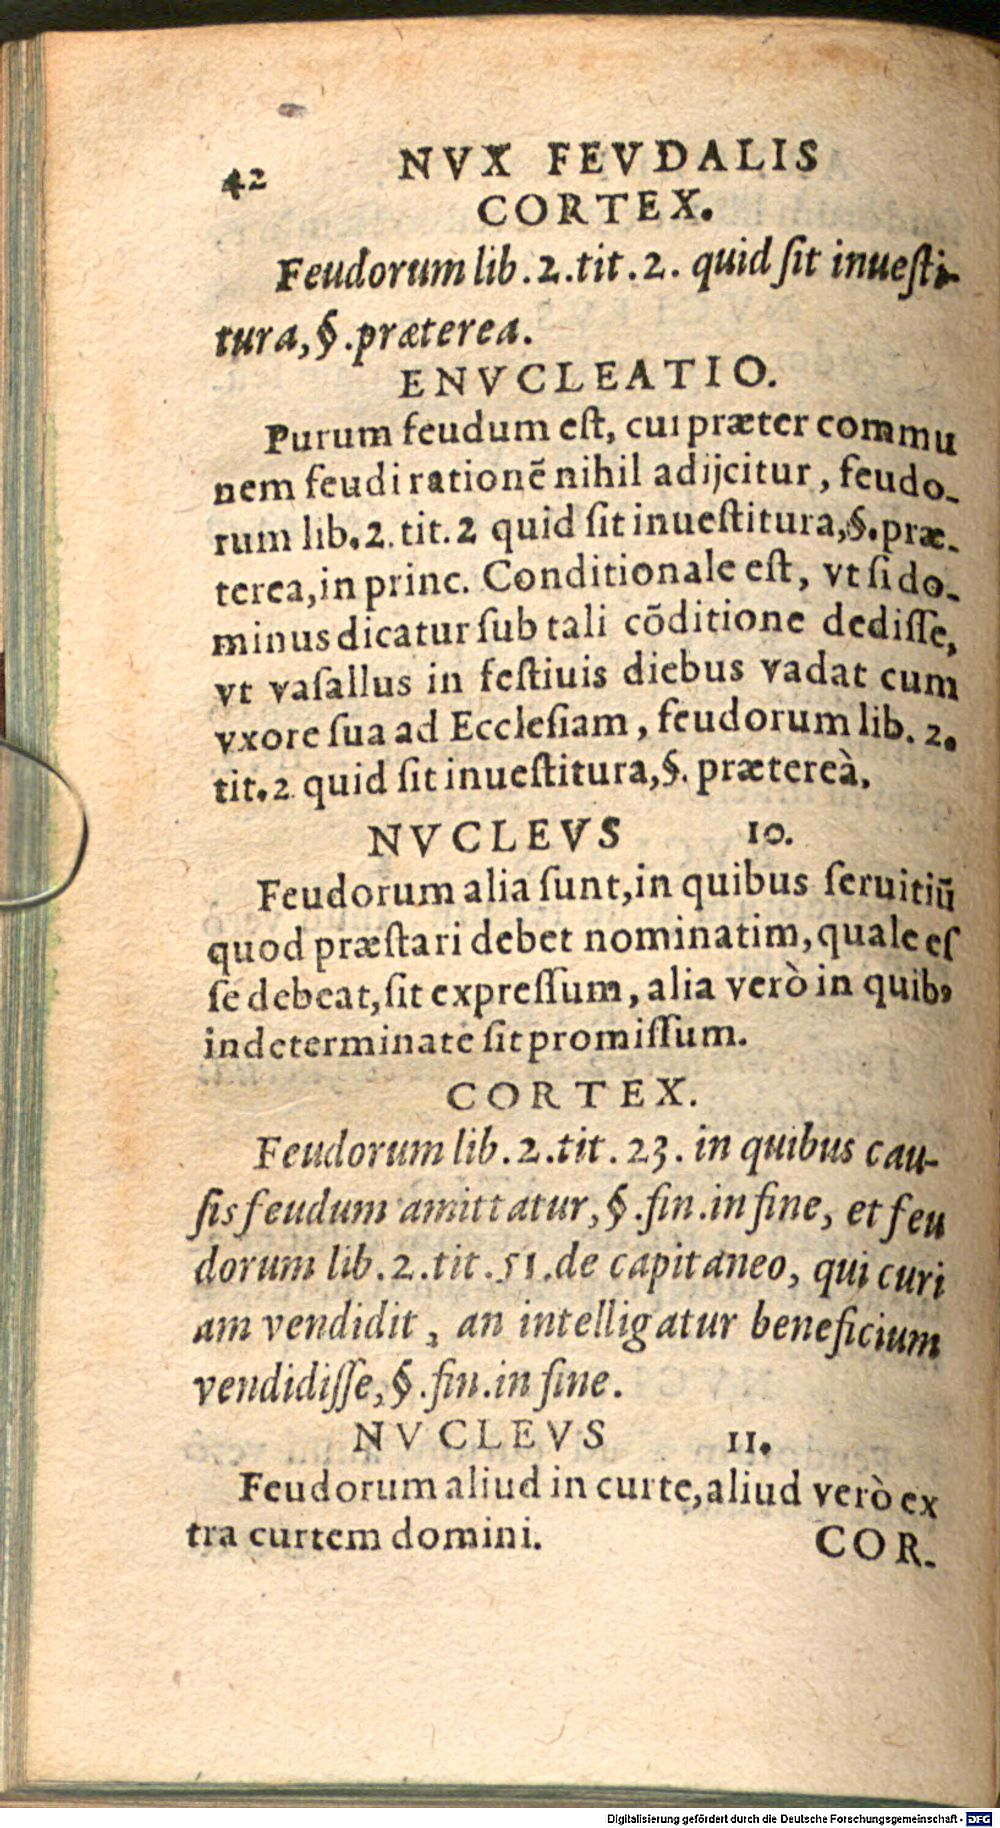 42 NVX FEVDALIS
CORTEX.
Feudorum lib.2.tit.2. quid ſit inueſti-
tura,§.præterea.
ENVCLEATIO.
Purum feudum eſt, cui præter commu
nem feudi rationẽ nihil adijcitur, feudo-
rum lib.2. tit.2 quid ſit inueſtitura,§.præ-
terea,in princ. Conditionale eſt, vt ſi do-
minus dicatur ſub tali cõditione dediſſe,
vt vaſallus in feſtiuis diebus vadat cum
vxore ſua ad Eccleſiam, feudorum lib. 2.
tit.2 quid ſit inueſtitura,§. prætereà.
NVCLEVS 10.
Feudorum alia ſunt,in quibus ſeruitiũ
quod præſtari debet nominatim,quale eſ
ſe debeat,ſit expreſſum, alia verò in quibꝰ
indeterminatè ſit promiſſum.
CORTEX.
Feudorum lib.2.tit.23. in quibus cau-
ſis feudum amittatur,§.fin.in fine, et feu
dorum lib.2.tit.51.de capitaneo, qui curi
am vendidit, an intelligatur beneficium
vendidiſſe,§.fin.in fine.
NVCLEVS 11.
Feudorum aliud in curte,aliud verò ex
tra curtem domini.
COR-
Digitalisierung gefördert durch die Deutsche Forschungsgemeinschaft - DFG